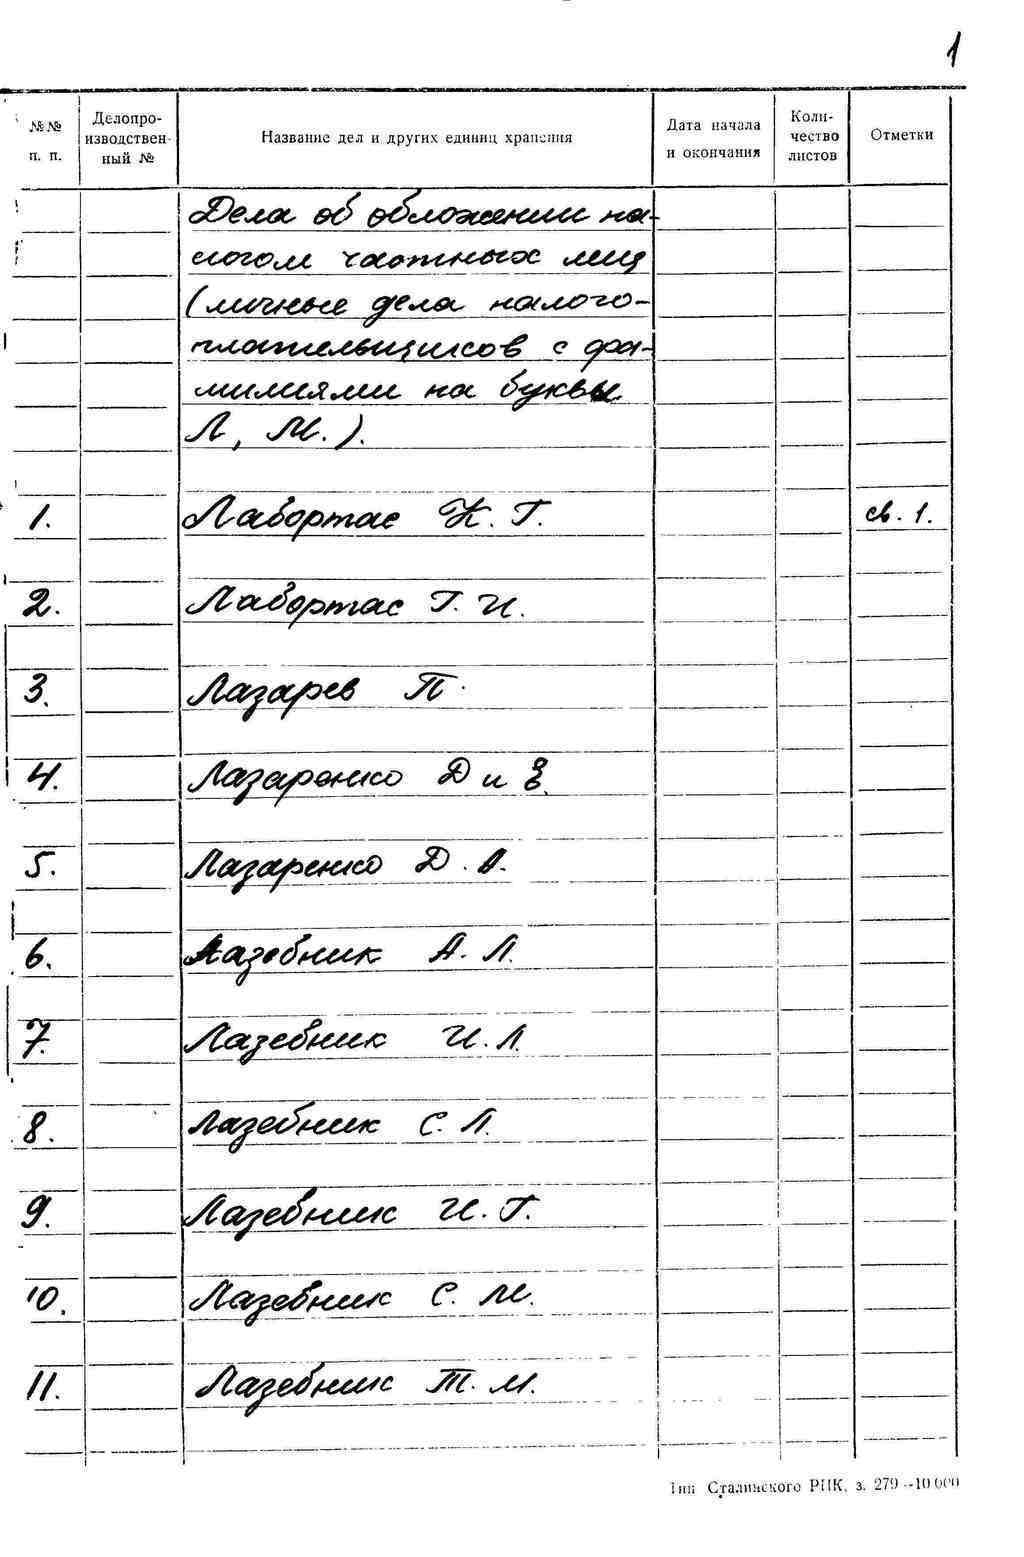 1
№№ п. п.
Делопро-
изводствен-
ный №
Название дел и других единиц хранения
Дата начала
и окончания
Коли-
чество
листов
Отметки
Дела об обложении на-
логом частных лиц
(личные дела налого-
плательщиков с фа-
милиями на буквы
Л, М.).
1. Лабортас К. Г. св. 1.
2. Лабортас Г. И.
3. Лазарев П.
4. Лазаренко Д и Е.
5. Лазаренко Д. А.
6. Лазебник А. Л.
7. Лазебник И. Л.
8. Лазебник С. Л.
9. Лазебник И. Г.
10. Лазебник С. М.
11. Лазебник Т. М.
Тип Сталинского РПК, з. 279--10 000